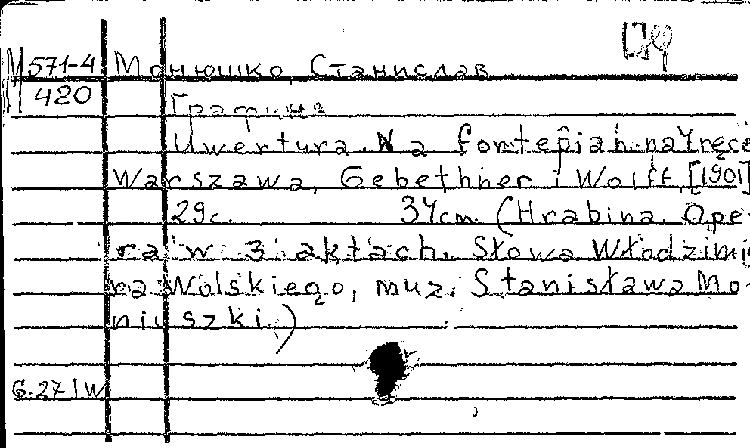 М 571-4 Монюшко, Станислав
420
Графиня
Uwertura. Na fortepian na 4 ręce
Warszawa, Gebethner i Wolff, [1901]
29 с. 34 cm. (Hrabina. Ope-
ra w 3 aktach. Słowa Włodzimie
ra Wolskiego, muz. Stanisława Mo-
niuszki.)
6.27 IW